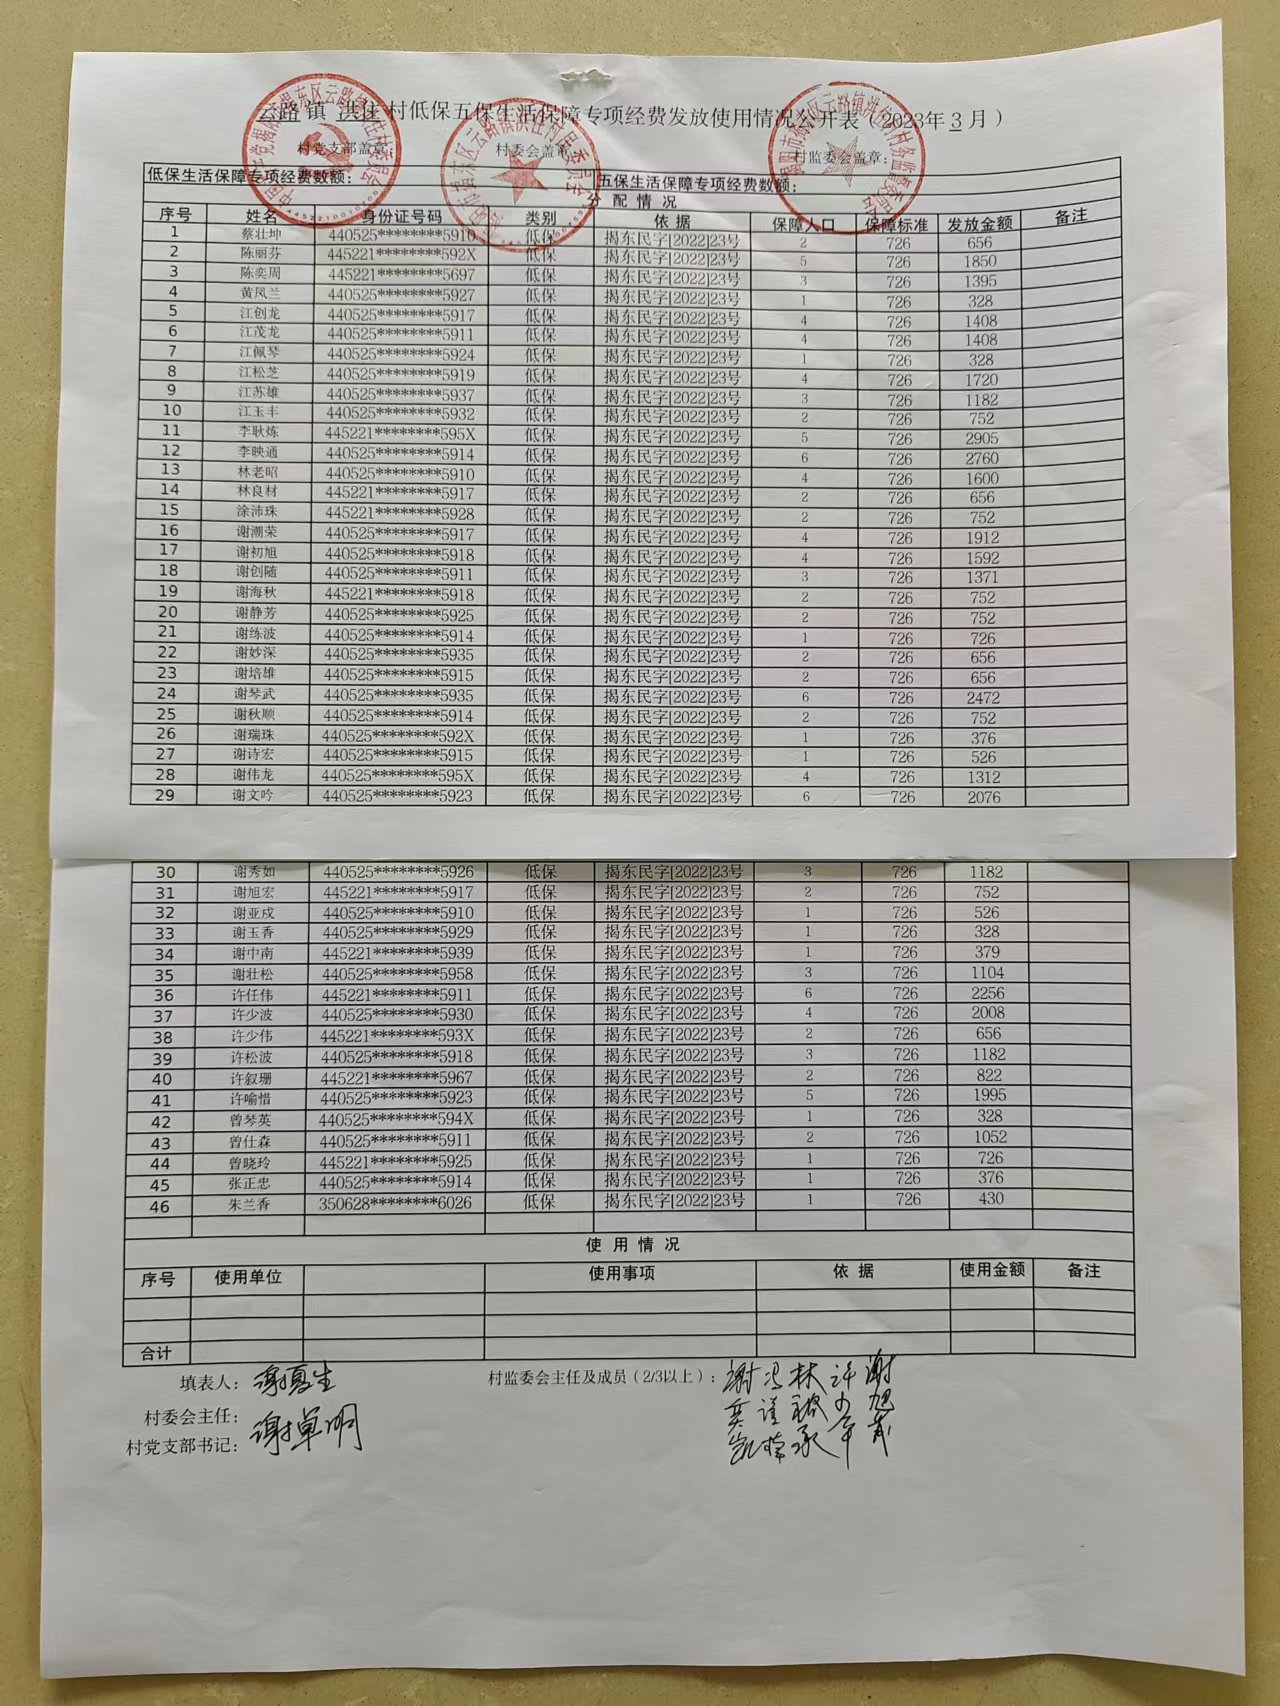 云路 镇 洪住 村低保五保生活保障专项经费发放使用情况公开表（2023年 3 月）
村党支部盖章： 村委会盖章： 村监委会盖章：
低保生活保障专项经费数额： 五保生活保障专项经费数额：
分 配 情 况
序号 姓名 身份证号码 类别 依 据 保障人口 保障标准 发放金额 备注
1 蔡壮坤 440525********5910 低保 揭东民字[2022]23号 2 726 656
2 陈丽芬 445221********592X 低保 揭东民字[2022]23号 5 726 1850
3 陈奕周 445221********5697 低保 揭东民字[2022]23号 3 726 1395
4 黄凤兰 440525********5927 低保 揭东民字[2022]23号 1 726 328
5 江创龙 440525********5917 低保 揭东民字[2022]23号 4 726 1408
6 江茂龙 440525********5911 低保 揭东民字[2022]23号 4 726 1408
7 江佩琴 440525********5924 低保 揭东民字[2022]23号 1 726 328
8 江松芝 440525********5919 低保 揭东民字[2022]23号 4 726 1720
9 江苏雄 440525********5937 低保 揭东民字[2022]23号 3 726 1182
10 江玉丰 440525********5932 低保 揭东民字[2022]23号 2 726 752
11 李耿炼 445221********595X 低保 揭东民字[2022]23号 5 726 2905
12 李映通 440525********5914 低保 揭东民字[2022]23号 6 726 2760
13 林老昭 440525********5910 低保 揭东民字[2022]23号 4 726 1600
14 林良材 445221********5917 低保 揭东民字[2022]23号 2 726 656
15 涂沛珠 445221********5928 低保 揭东民字[2022]23号 2 726 752
16 谢潮荣 440525********5917 低保 揭东民字[2022]23号 4 726 1912
17 谢初旭 440525********5918 低保 揭东民字[2022]23号 4 726 1592
18 谢创随 440525********5911 低保 揭东民字[2022]23号 3 726 1371
19 谢海秋 445221********5918 低保 揭东民字[2022]23号 2 726 752
20 谢静芳 440525********5925 低保 揭东民字[2022]23号 2 726 752
21 谢练波 440525********5914 低保 揭东民字[2022]23号 1 726 726
22 谢妙深 440525********5935 低保 揭东民字[2022]23号 2 726 656
23 谢培雄 440525********5915 低保 揭东民字[2022]23号 2 726 656
24 谢琴武 440525********5935 低保 揭东民字[2022]23号 6 726 2472
25 谢秋顺 440525********5914 低保 揭东民字[2022]23号 2 726 752
26 谢瑞珠 440525********592X 低保 揭东民字[2022]23号 1 726 376
27 谢诗宏 440525********5915 低保 揭东民字[2022]23号 1 726 526
28 谢伟龙 440525********595X 低保 揭东民字[2022]23号 4 726 1312
29 谢文吟 440525********5923 低保 揭东民字[2022]23号 6 726 2076
30 谢秀如 440525********5926 低保 揭东民字[2022]23号 3 726 1182
31 谢旭宏 445221********5917 低保 揭东民字[2022]23号 2 726 752
32 谢亚戍 440525********5910 低保 揭东民字[2022]23号 1 726 526
33 谢玉香 440525********5929 低保 揭东民字[2022]23号 1 726 328
34 谢中南 445221********5939 低保 揭东民字[2022]23号 1 726 379
35 谢壮松 440525********5958 低保 揭东民字[2022]23号 3 726 1104
36 许任伟 445221********5911 低保 揭东民字[2022]23号 6 726 2256
37 许少波 440525********5930 低保 揭东民字[2022]23号 4 726 2008
38 许少伟 445221********593X 低保 揭东民字[2022]23号 2 726 656
39 许松波 440525********5918 低保 揭东民字[2022]23号 3 726 1182
40 许叙珊 445221********5967 低保 揭东民字[2022]23号 2 726 822
41 许喻惜 440525********5923 低保 揭东民字[2022]23号 5 726 1995
42 曾琴英 440525********594X 低保 揭东民字[2022]23号 1 726 328
43 曾仕森 440525********5911 低保 揭东民字[2022]23号 2 726 1052
44 曾晓玲 445221********5925 低保 揭东民字[2022]23号 1 726 726
45 张正忠 440525********5914 低保 揭东民字[2022]23号 1 726 376
46 朱兰香 350628********6026 低保 揭东民字[2022]23号 1 726 430
使 用 情 况
序号 使用单位 使用事项 依 据 使用金额 备注
合计
填表人： 村监委会主任及成员（2/3以上）：
村委会主任：
村党支部书记： 谢卓明